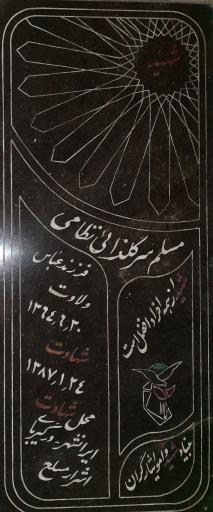 شهید
مسلم سرگلدائی نظامی
فرزند عباس
ولادت
۱۳۶۴٫۶٫۲۰
شهادت
۱۳۸۷٫۱٫۲۴
محل شهادت
ایرانشهر
اشرار مسلح
شهید از همه افراد افضل است
بنیاد شهید و امور ایثارگران